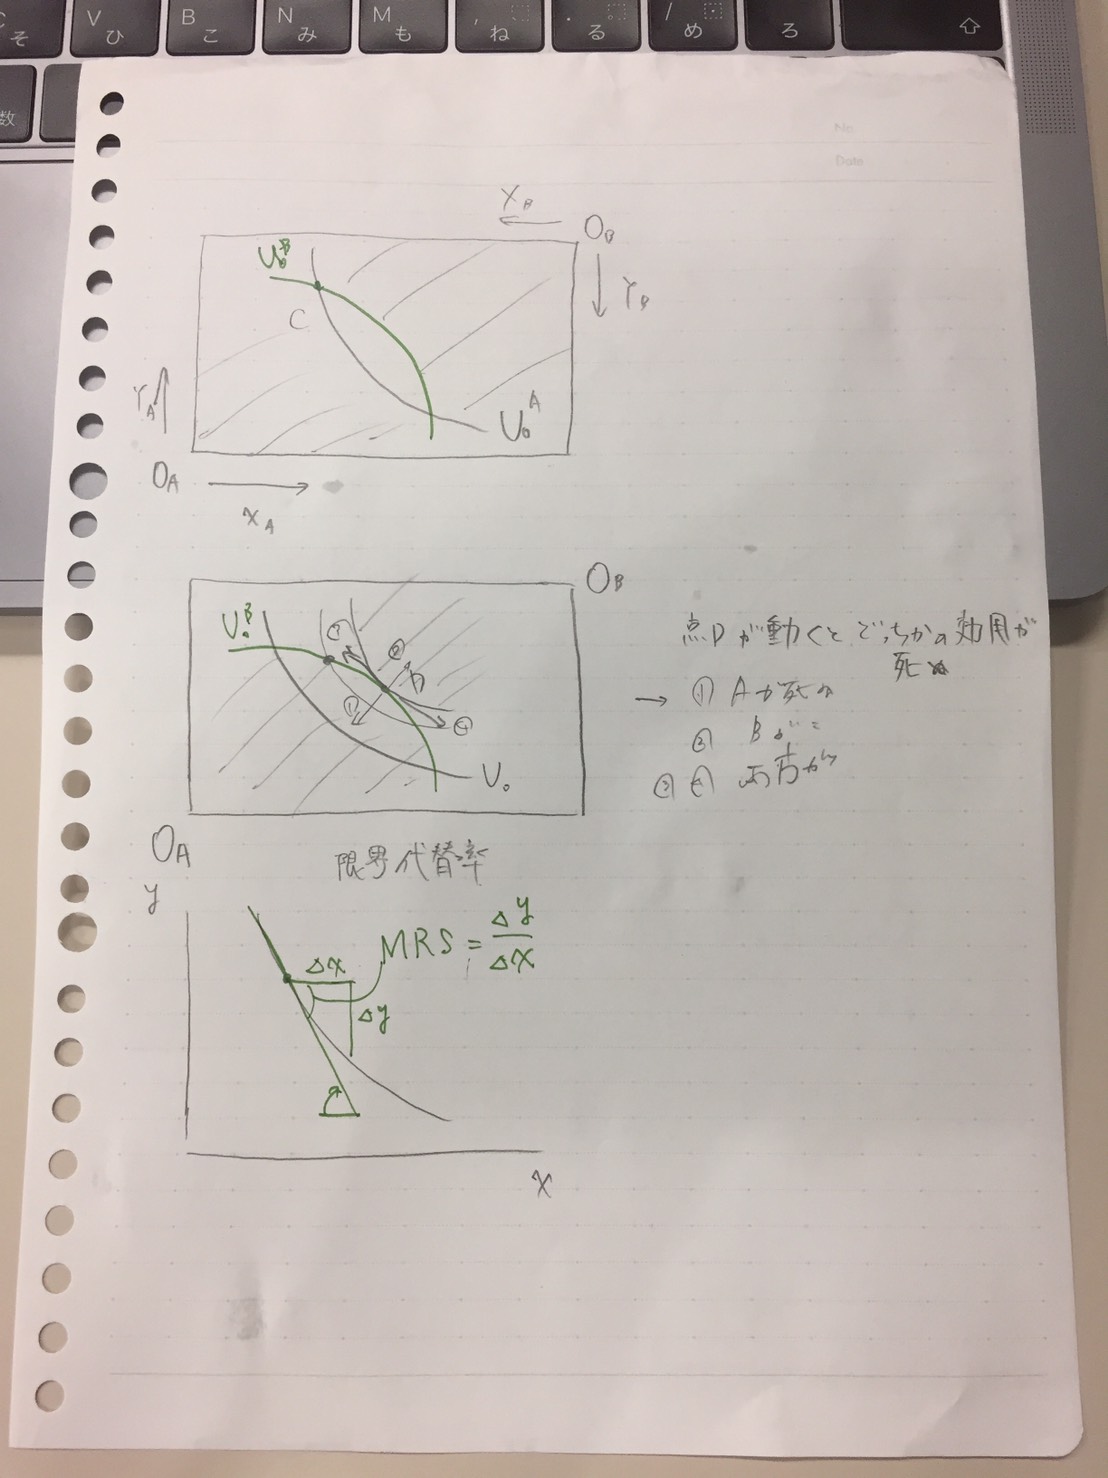 C そ V ひ B こ N み M も , ね . る / め ろ
数
No.
Date
X_B
O_B
Y_B
U₀ᴮ
C
Y_A
U₀ᴬ
O_A
X_A
O_B
U₀ᴮ
① ② ③ ④
D
U₀
O_A
点Dが動くとどっちかの効用が
死ぬ
→ ① Aが死ぬ
② Bが〃
③ ④ 両方が
限界代替率
y
MRS = Δy/Δx
Δx
Δy
x